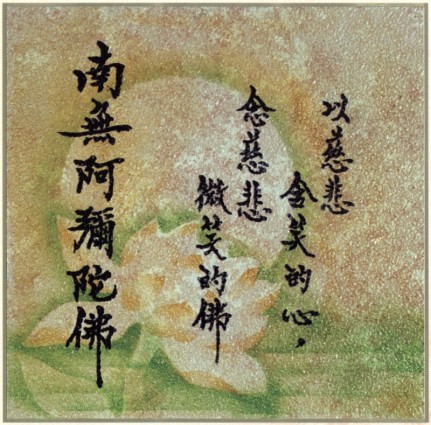 以慈悲
含笑的心，
念慈悲
微笑的佛
南無阿彌陀佛